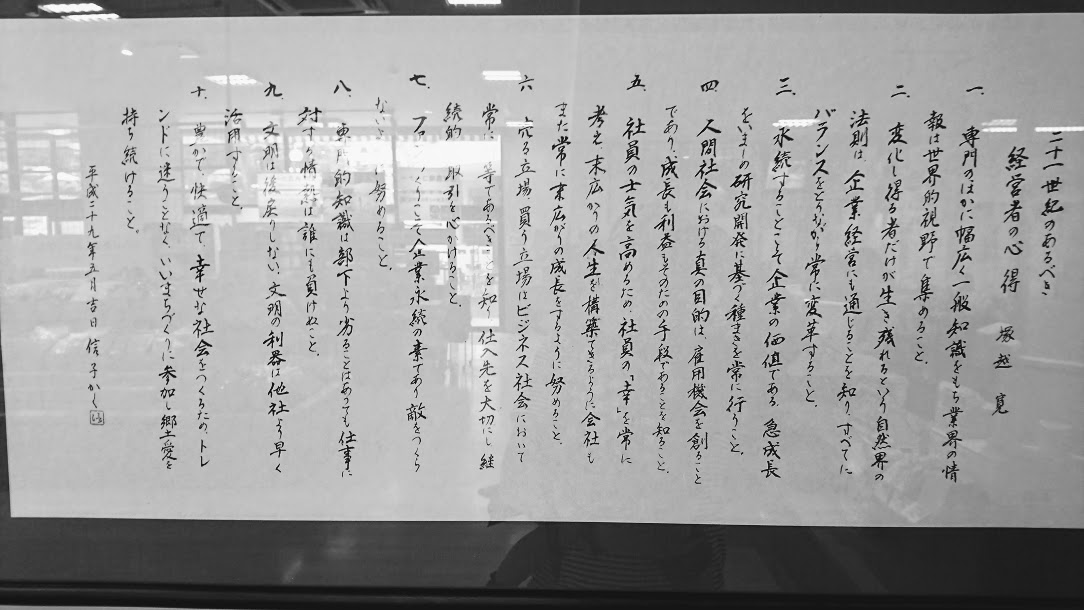 二十一世紀のあるべき
経営者の心得　塚越寛
一、専門のほかに幅広く一般知識をもち業界の情
報は世界的視野で集めること。
二、変化し得る者だけが生き残れるという自然界の
法則は、企業経営にも通じることを知り、すべてに
バランスをとりながら常に変革すること。
三、永続することこそ企業の価値である。急成長
をいましめ研究開発に基づく種まきを常に行うこと。
四、人間社会における真の目的は、雇用機会を創ること
であり、成長も利益もそのための手段であることを知ること。
五、社員の士気を高めるため、社員の「幸」を常に
考え、末広がりの人生を構築できるように会社も
また常に末広がりの成長をするように努めること。
六、売る立場買う立場はビジネス社会において
常に 等であるべきことを知り、仕入先を大切にし継
続的 取引を心がけること。
七、ファンづくりこそ企業永続の素であり、敵をつくら
ない 努めること。
八、専門的知識は部下より劣ることはあっても、仕事に
対する情熱は誰にも負けぬこと。
九、文明は後戻りしない。文明の利器は他社より早く
活用すること。
十、豊かで、快適で、幸せな社会をつくるため、トレ
ンドに迷うことなく、いいまちづくりに参加し郷土愛を
持ち続けること。
平成二十九年五月吉日　信子かく